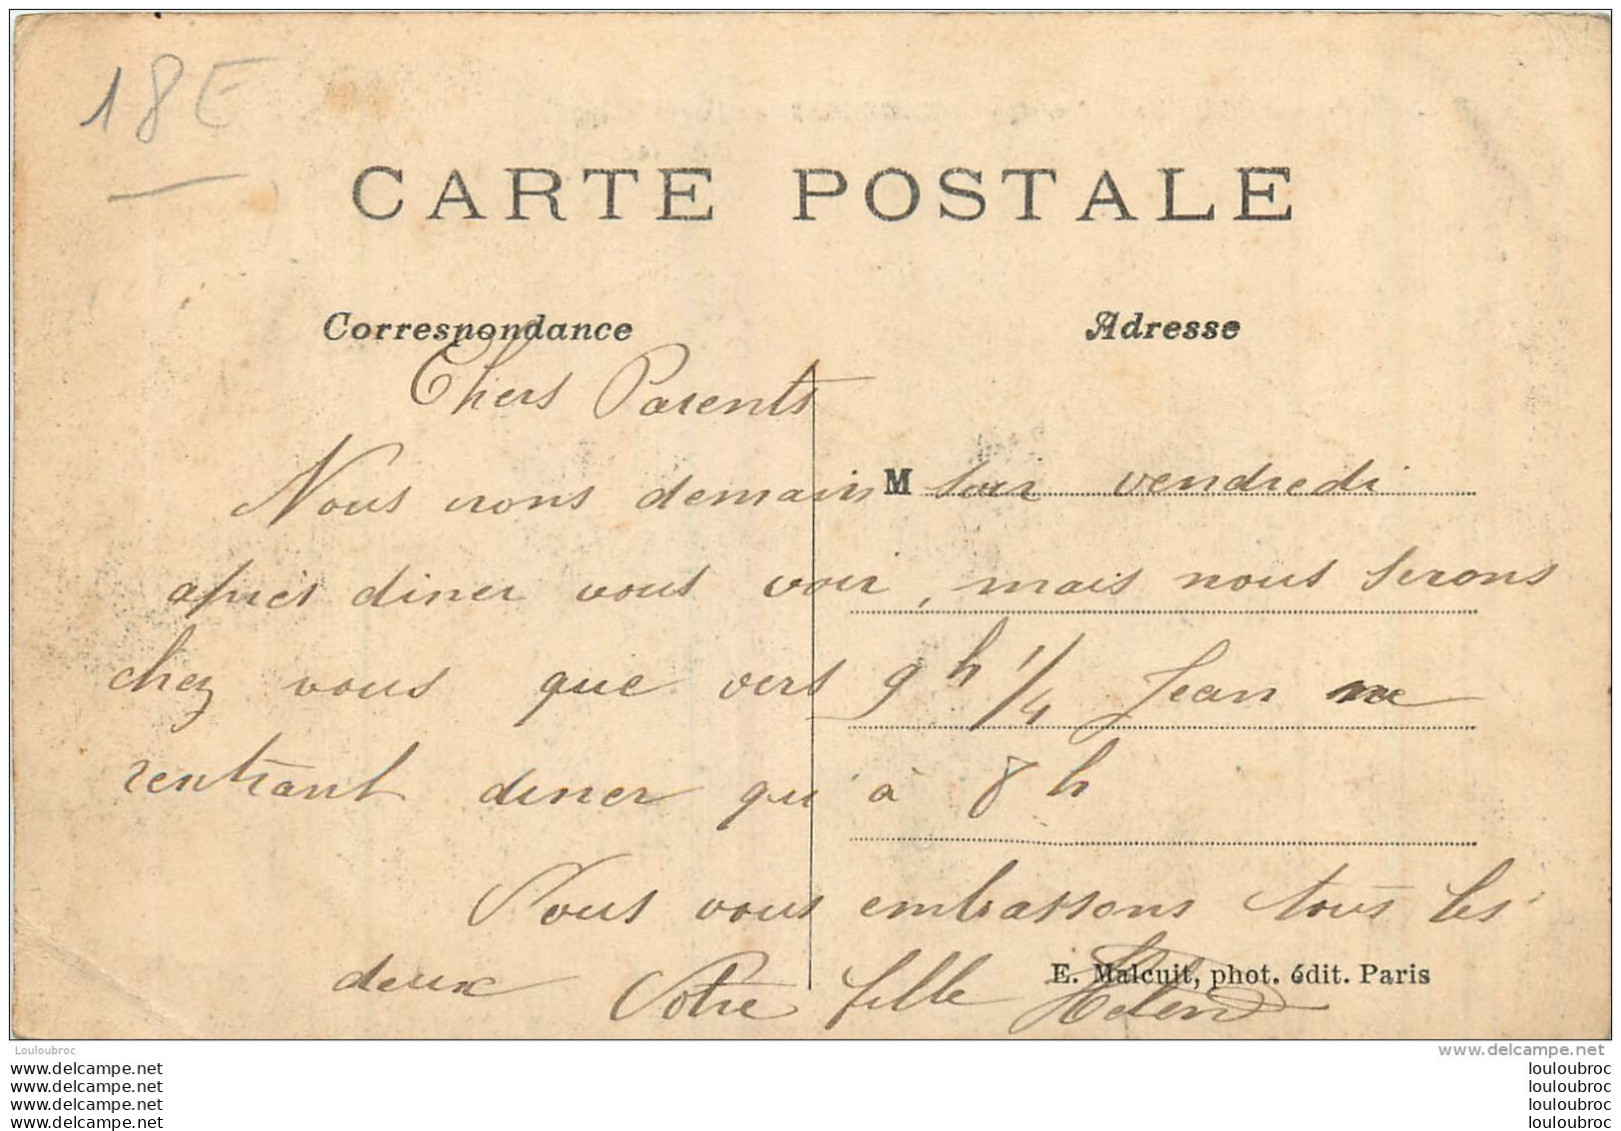 18E
CARTE POSTALE
Correspondance
Adresse
Chers Parents
Nous irons demain M soir vendredi
après diner vous voir, mais nous serons
chez vous que vers 9h 1/4 Jean ne
rentrant diner qu'à 8h
Nous vous embrassons tous les
deux Votre fille Helene
E. Malcuit, phot. édit. Paris
Louloubroc
www.delcampe.net
www.delcampe.net
www.delcampe.net
www.delcampe.net
www.delcampe.net
louloubroc
louloubroc
louloubroc
louloubroc